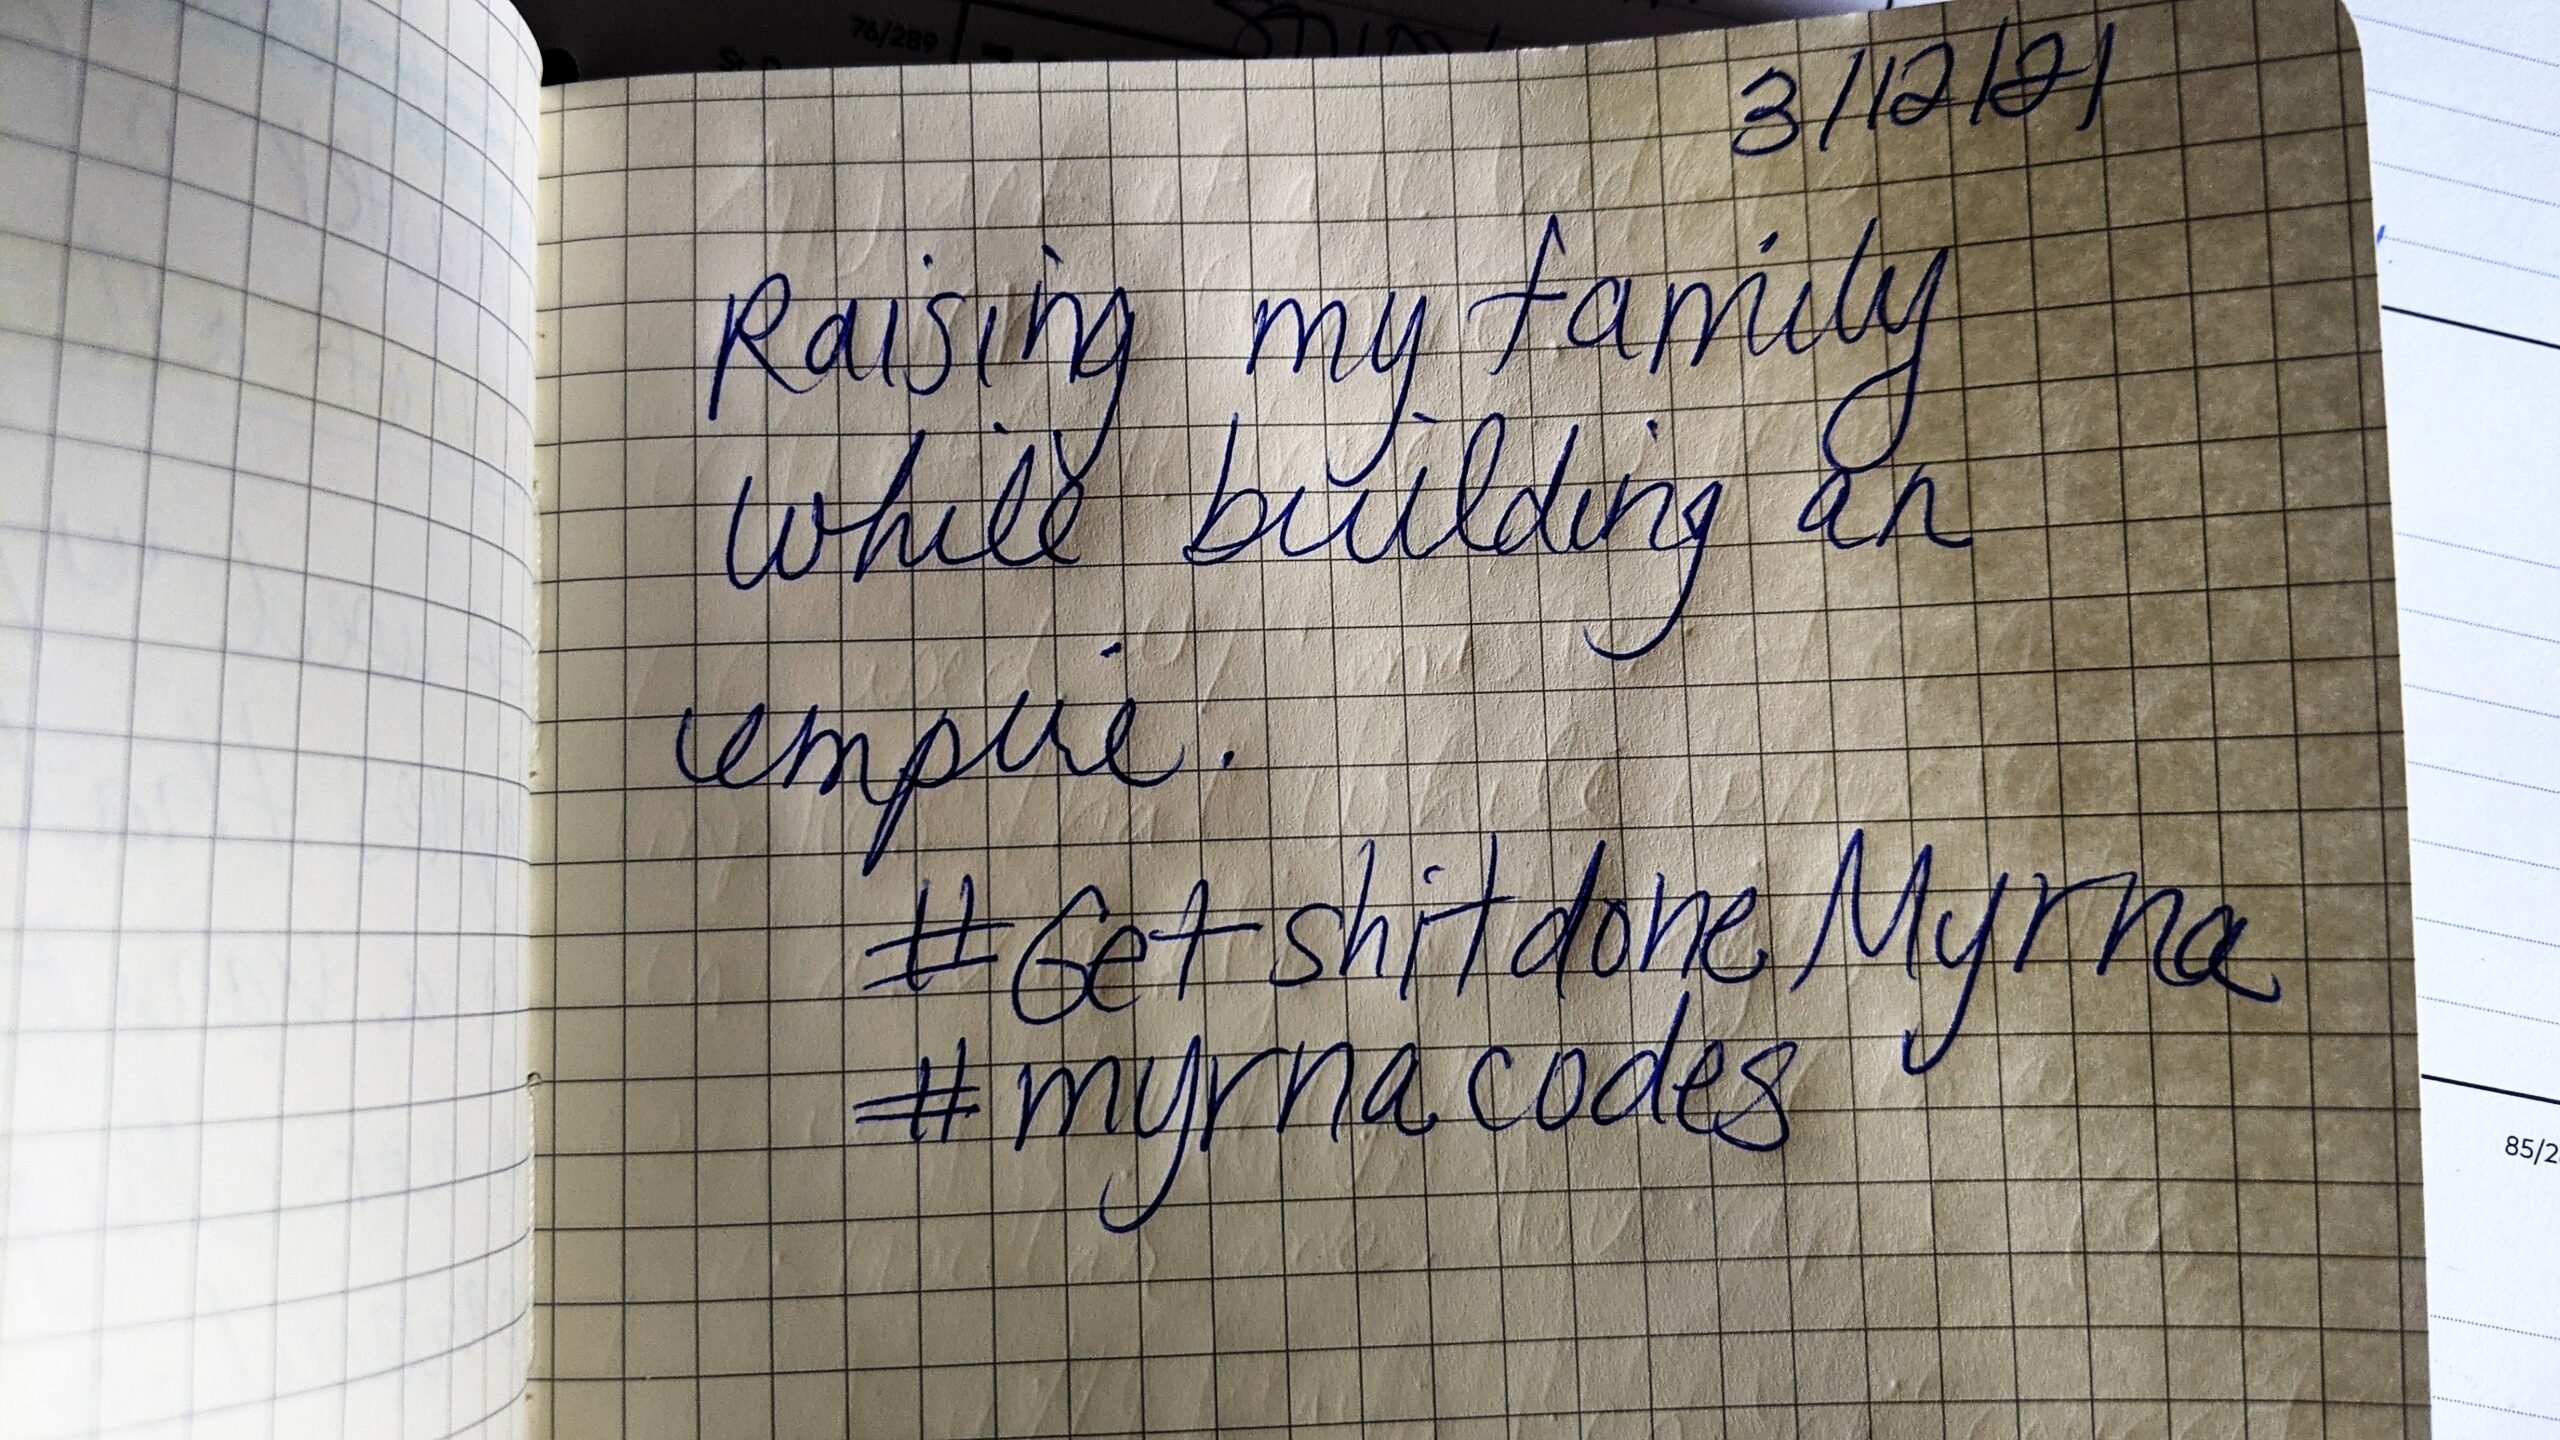 76/289
3/12/21
Raising my family
while building an
empire.
#GetshitdoneMyrna
#myrnacodes